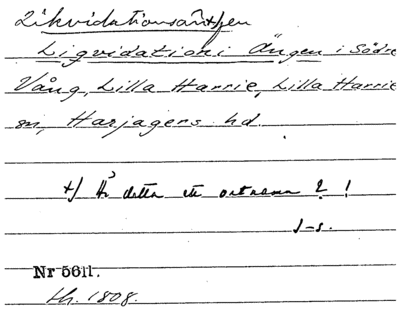 Likvidationsängen
Liqvidations Ängen i Södre
Vång, Lilla Harrie, Lilla Harrie
sn, Harjagers hd.
+) Är detta ett ortnamn? !
J-s.
Nr 5611.
th. 1808.